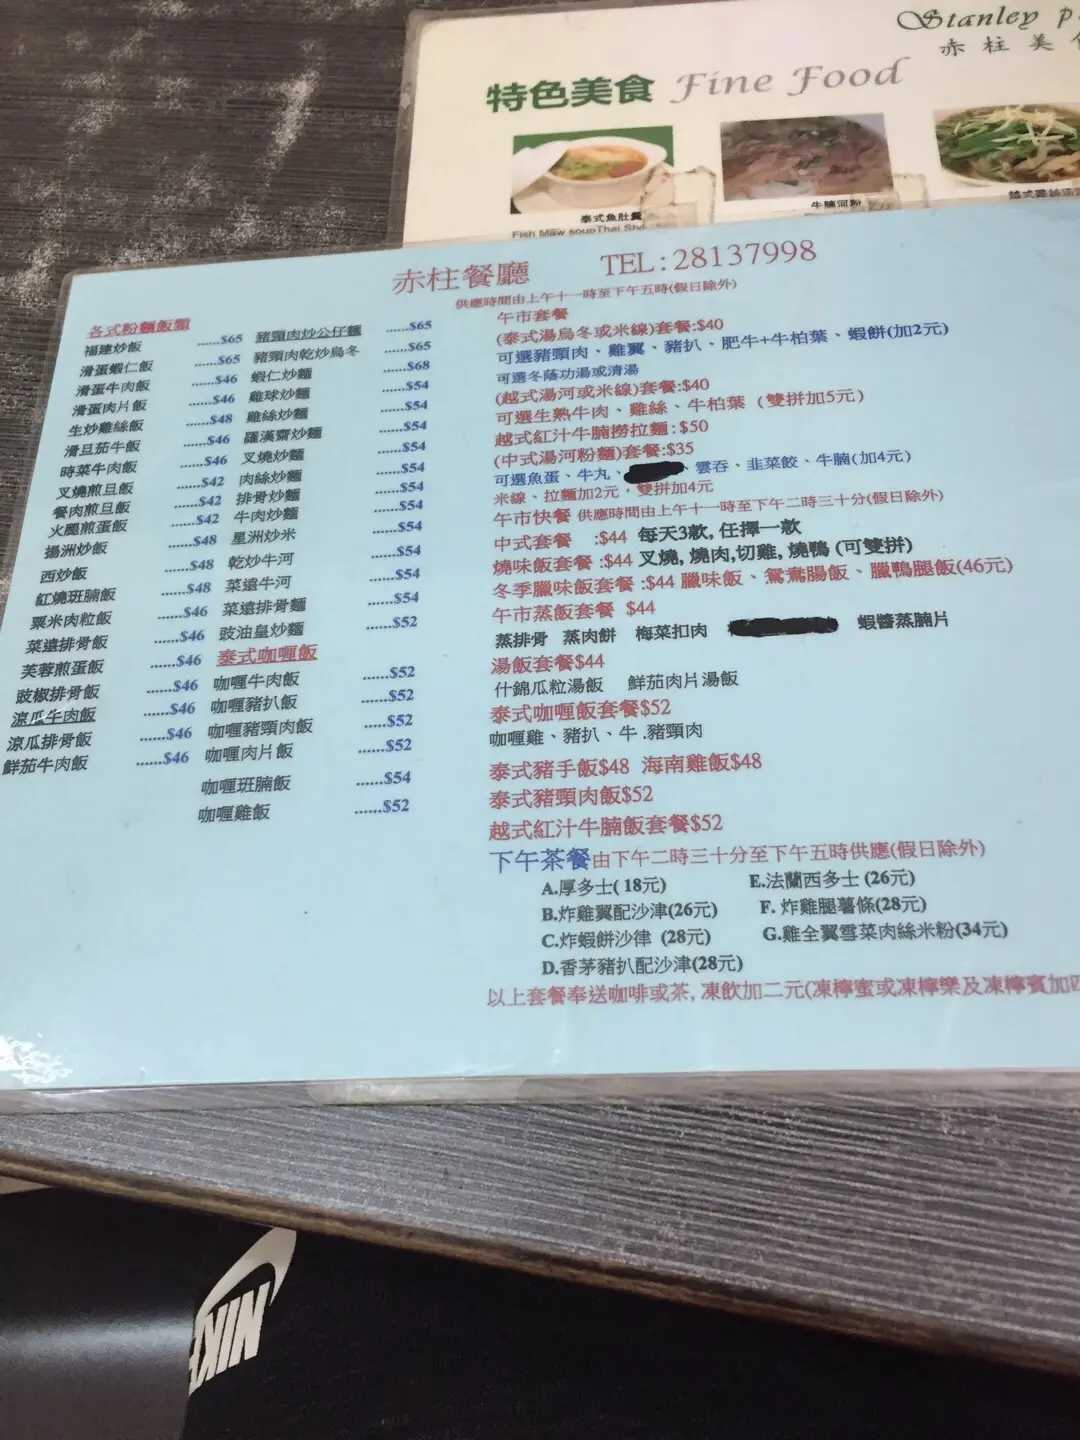 Stanley
赤柱美
特色美食 Fine Food
泰式魚肚羹
Fish Maw soup Thai Sty
牛腩河粉
赤柱餐廳 TEL:28137998
供應時間由上午十一時至下午五時(假日除外)
各式粉麵飯類
福建炒飯 ......$65
滑蛋蝦仁飯 ......$65
滑蛋牛肉飯 ......$46
滑蛋肉片飯 ......$46
生炒雞絲飯 ......$48
滑旦茄牛飯 ......$46
時菜牛肉飯 ......$46
叉燒煎旦飯 ......$42
餐肉煎旦飯 ......$42
火腿煎蛋飯 ......$42
揚洲炒飯 ......$48
西炒飯 ......$48
紅燒班腩飯 ......$48
粟米肉粒飯 ......$46
菜遠排骨飯 ......$46
芙蓉煎蛋飯 ......$46
豉椒排骨飯 ......$46
涼瓜牛肉飯 ......$46
涼瓜排骨飯 ......$46
鮮茄牛肉飯 ......$46
豬頸肉炒公仔麵 ......$65
豬頸肉乾炒烏冬 ......$65
蝦仁炒麵 ......$68
雞球炒麵 ......$54
雞絲炒麵 ......$54
羅漢齋炒麵 ......$54
叉燒炒麵 ......$54
肉絲炒麵 ......$54
排骨炒麵 ......$54
牛肉炒麵 ......$54
星洲炒米 ......$54
乾炒牛河 ......$54
菜遠牛河 ......$54
菜遠排骨麵 ......$54
豉油皇炒麵 ......$52
泰式咖喱飯
咖喱牛肉飯 ......$52
咖喱豬扒飯 ......$52
咖喱豬頸肉飯 ......$52
咖喱肉片飯 ......$52
咖喱班腩飯 ......$54
咖喱雞飯 ......$52
午市套餐
(泰式湯烏冬或米線)套餐:$40
可選豬頸肉、雞翼、豬扒、肥牛+牛柏葉、蝦餅(加2元)
可選冬蔭功湯或清湯
(越式湯河或米線)套餐:$40
可選生熟牛肉、雞絲、牛柏葉 (雙拼加5元)
越式紅汁牛腩撈拉麵:$50
(中式湯河粉麵)套餐:$35
可選魚蛋、牛丸、 雲吞、韭菜餃、牛腩(加4元)
米線、拉麵加2元，雙拼加4元
午市快餐 供應時間由上午十一時至下午二時三十分(假日除外)
中式套餐 :$44 每天3款, 任擇一款
燒味飯套餐:$44 叉燒, 燒肉,切雞, 燒鴨 (可雙拼)
冬季臘味飯套餐:$44 臘味飯、鴛鴦腸飯、臘鴨腿飯(46元)
午市蒸飯套餐 $44
蒸排骨 蒸肉餅 梅菜扣肉 蝦醬蒸腩片
湯飯套餐$44
什錦瓜粒湯飯 鮮茄肉片湯飯
泰式咖喱飯套餐$52
咖喱雞、豬扒、牛.豬頸肉
泰式豬手飯$48 海南雞飯$48
泰式豬頸肉飯$52
越式紅汁牛腩飯套餐$52
下午茶餐由下午二時三十分至下午五時供應(假日除外)
A.厚多士( 18元) E.法蘭西多士 (26元)
B.炸雞翼配沙津(26元) F. 炸雞腿薯條(28元)
C.炸蝦餅沙律 (28元) G.雞全翼雪菜肉絲米粉(34元)
D.香茅豬扒配沙津(28元)
以上套餐奉送咖啡或茶, 凍飲加二元(凍檸蜜或凍檸樂及凍檸賓加
NIKE